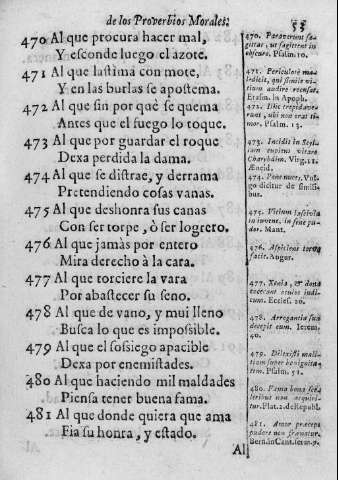 de los Proverbios Morales. 55
470 Al que procura hacer mal,
Y esconde luego el azote.
471 Al que lastima con mote,
Y en las burlas se apostema.
472 Al que sin por què se quema
Antes que el fuego lo toque.
473 Al que por guardar el roque
Dexa perdida la dama.
474 Al que se distrae, y derrama
Pretendiendo cosas vanas.
475 Al que deshonra sus canas
Con ser torpe, ò ser logrero.
476 Al que jamàs por entero
Mira derecho à la cara.
477 Al que torciere la vara
Por abastecer su seno.
478 Al que de vano, y mui lleno
Busca lo que es impossible.
479 Al que el sossiego apacible
Dexa por enemistades.
480 Al que haciendo mil maldades
Piensa tener buena fama.
481 Al que donde quiera que ama
Fia su honra, y estado.
Al
470. Paraverunt sa-
gittas, ut sagittent in
obscuro. Psalm. 10.
471. Periculosè ma-
ledicit, qui similè vi-
tium audire
Erasm. in Apoph.
472. trepidave-
runt, ubi non erat ti-
mor. Psalm. 13.
473. Incidit in Scyl-
lam cupiens vitare
Charybdim. Virg. 11.
Æneid.
474. Vul-
go dicitur de simili-
bus.
475. Vitium lascivia
in juvene, in sene fu-
ror. Mant.
476.
Augur.
477. Xenia, & dona
excecant oculos judi-
cum. Eccles. 20.
478. Arrogantia sua
decepit eum. Ierem.
40.
479. Dilexisti mali-
tiam super benignita-
tem. Psalm. 51.
480. Fama bona sce-
leribus non acquiri-
tur. Plat. 2. de Republ.
481. Amor præceps
pudere non
Bern. in Cant. serm. 9.